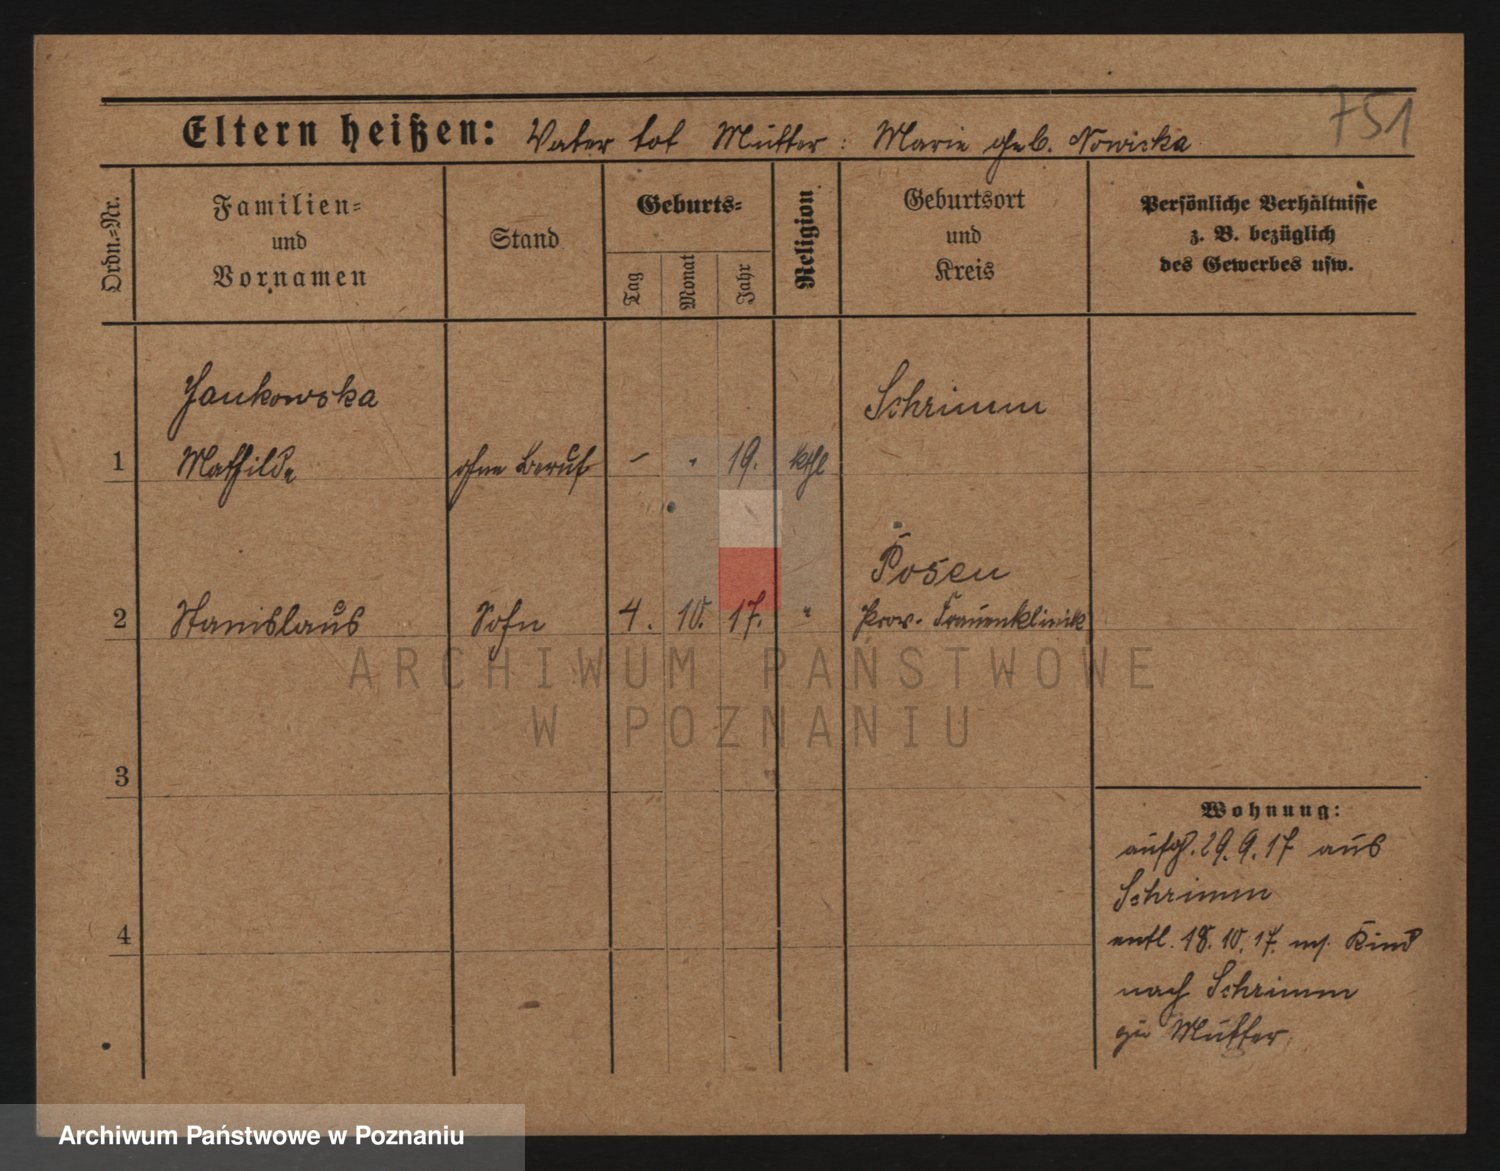 751
Eltern heißen: Vater tot Mutter: Marie geb. Nowicka
Ordn.=Nr.
Familien=
und
Vornamen
Stand
Geburts=
Tag
Monat
Jahr
Religion
Geburtsort
und
Kreis
Persönliche Verhältnisse
z. B. bezüglich
des Gewerbes usw.
Jankowska
Schrimm
1 Mathilde ohne Beruf - - 19. kthl
Posen
2 Stanislaus Sohn 4. 10. 17. " Prov. Frauenklinik
3
4
Wohnung:
aufg. 29.9.17 aus
Schrimm
entl. 18.10.17. m. Kind
nach Schrimm
zu Mutter
ARCHIWUM PAŃSTWOWE
W POZNANIU
Archiwum Państwowe w Poznaniu